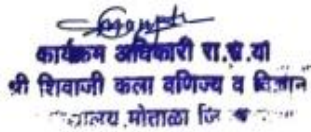 कार्यक्रम अधिकारी रा.से.यो
श्री शिवाजी कला वणिज्य व विज्ञान
मोताळा जि